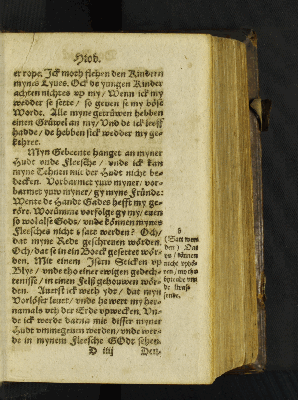 Hiob.
er rope. Ick moth flehen den Kindern
mynes Lyves. Ock de yungen Kinder
achten nichtes vp my / Wenn ick my
wedder se sette / so geven se my böse
Worde. Alle myne getrüwen hebben
einen Grüwel an my / Vnd de ick leeff
hadde / de hebben sick wedder my ge-
kehret.
Myn Gebeente hanget an myner
Hudt vnde Fleesche / vnde ick kan
myne Tehnen mit der Hudt nicht be-
decken. Vorbarmet yuw myner / vor-
barmet yuw myner / gy myne Fründe:
Wente de Handt Gades hefft my ge-
röret. Worümme vorfolge gy my / euen
so wol alse Gods / vnde können mynes
Fleesches nicht satt werden? Och /
dat myne Rede geschreuen wörden.
Och / dat se in ein Boeck gesettet wör-
den. Mit einem Isern Sticken vp
Blye / vnde tho einer ewigen gedech-
tenisse / in einen Felß gehouwen wör-
den. Auerst ick weth ydt / dat myn
Vorlöser leuet / vnde he wert my her-
namals vth der Erde vpwecken. Vn-
de ick werde darna mit disser myner
Hudt vmmegeuen werden / vnde wer-
de in mynem Fleesche GOdt sehen.
D iiij
Den-
(Satt wer-
den)